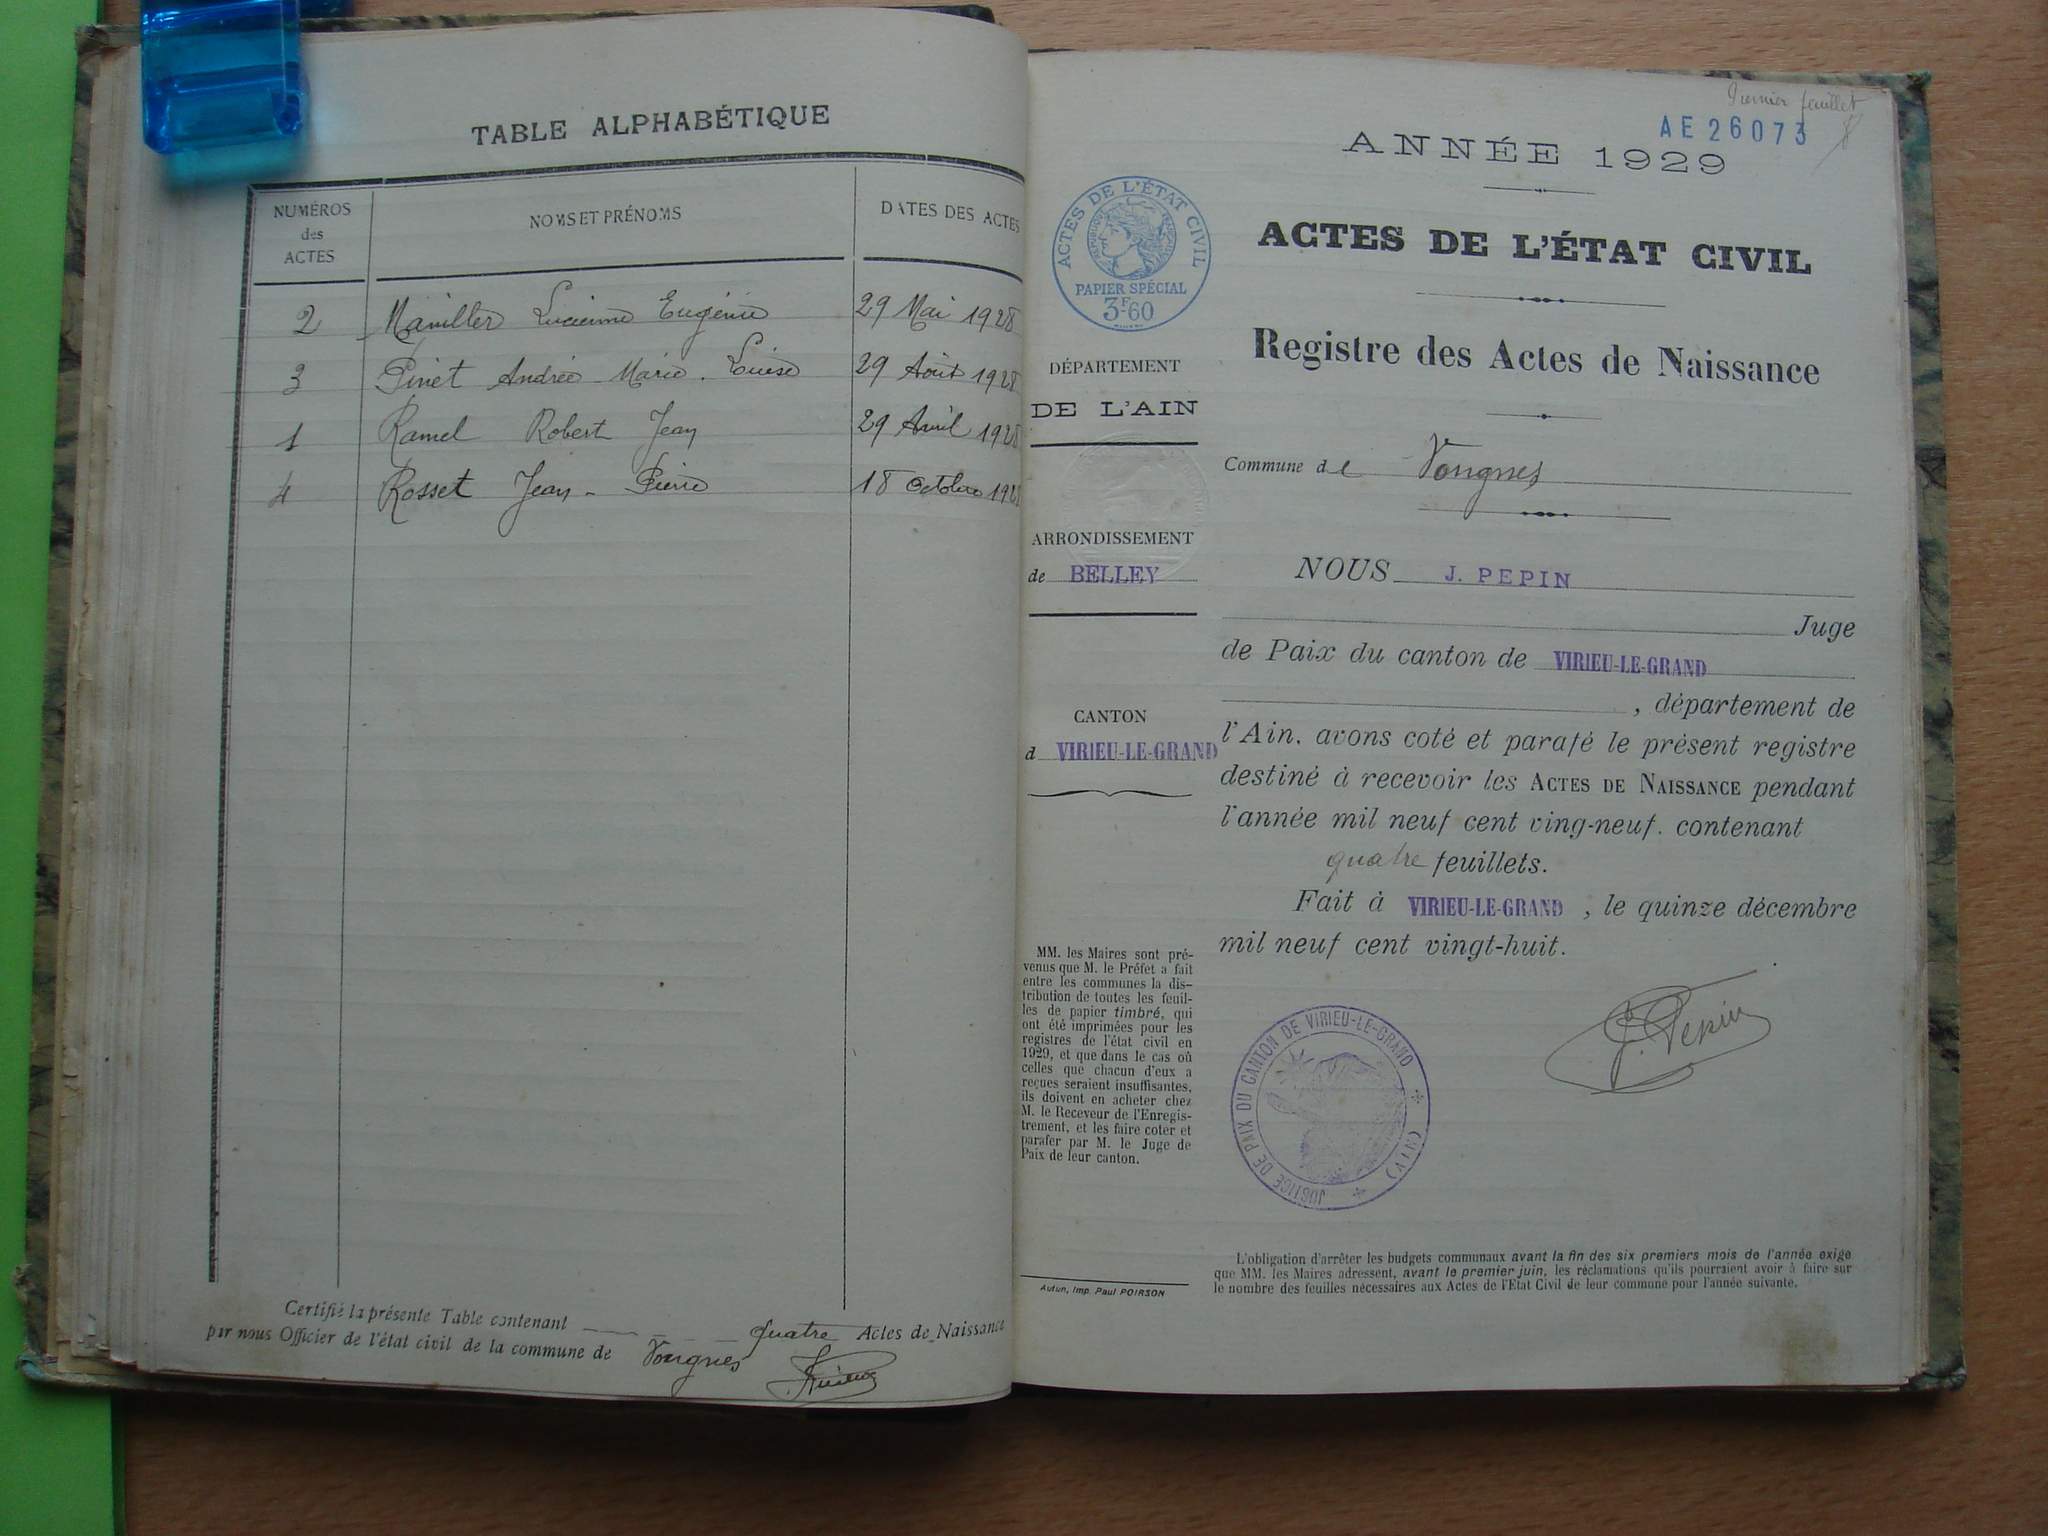 TABLE ALPHABÉTIQUE
NUMÉROS
des
ACTES
NOMS ET PRÉNOMS
DATES DES ACTES
2 Lucienne Eugénie 29 Mai 1928
3 Pinet Andrée Marie. Louise 29 Août 1928
1 Ramel Robert Jean 29 Avril 1928
4 Rosset Jean - Pierre 18 Octobre 1928
Certifié la présente Table contenant quatre Actes de Naissance
par nous Officier de l'état civil de la commune de Vongnes
Premier feuillet
AE26073
ANNÉE 1929
ACTES DE L'ÉTAT CIVIL
RÉPUBLIQUE FRANÇAISE
PAPIER SPÉCIAL
3F60
ACTES DE L'ÉTAT CIVIL
Registre des Actes de Naissance
DÉPARTEMENT
DE L'AIN
ARRONDISSEMENT
de BELLEY
CANTON
d VIRIEU-LE-GRAND
Commune de Vongnes
NOUS J. PEPIN
Juge
de Paix du canton de VIRIEU-LE-GRAND
, département de
l'Ain. avons coté et parafé le présent registre
destiné à recevoir les ACTES DE NAISSANCE pendant
l'année mil neuf cent ving-neuf. contenant
quatre feuillets.
Fait à VIRIEU-LE-GRAND, le quinze décembre
mil neuf cent vingt-huit.
J. Pepin
JUSTICE DE PAIX DU CANTON DE VIRIEU-LE-GRAND
(AIN)
MM. les Maires sont pré-
venus que M. le Préfet a fait
entre les communes la dis-
tribution de toutes les feuil-
les de papier timbré, qui
ont été imprimées pour les
registres de l'état civil en
1929, et que dans le cas où
celles que chacun d'eux a
reçues seraient insuffisantes,
ils doivent en acheter chez
M. le Receveur de l'Enregis-
trement, et les faire coter et
parafer par M. le Juge de
Paix de leur canton.
Autun, Imp. Paul POIRSON
L'obligation d'arrêter les budgets communaux avant la fin des six premiers mois de l'année exige
que MM. les Maires adressent, avant le premier juin, les réclamations qu'ils pourraient avoir à faire sur
le nombre des feuilles nécessaires aux Actes de l'État Civil de leur commune pour l'année suivante.